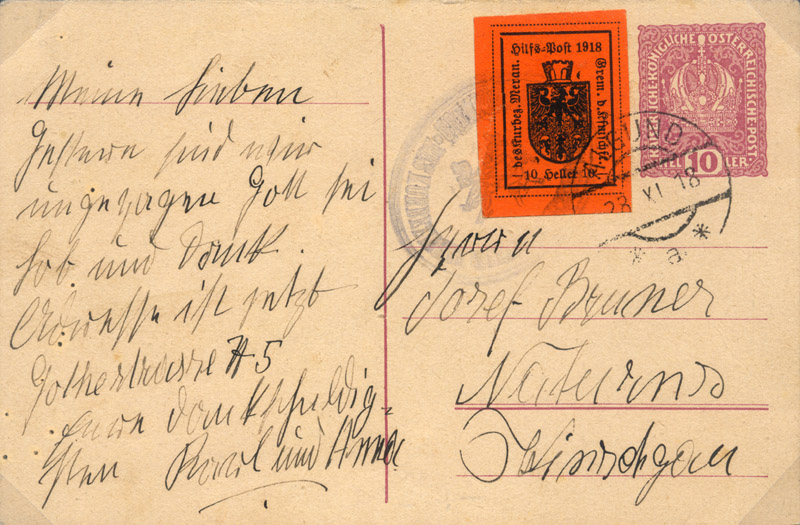 Meine Lieben
Gestern sind wir
umgezogen Gott sei
Lob und Dank.
Adresse ist jetzt
Gothestrasse 5
Eure dankschuldig-
sten Karl und Anna
Hilfs-Post 1918
Meran.
10 Heller 10
KAISERLICHE-KÖNIGLICHE ÖSTERREICHISCHE POST
HELLER
10
LAGUND
23 XI 18
* a *
Herrn
Josef Bruner
Naturns
Vinschgau